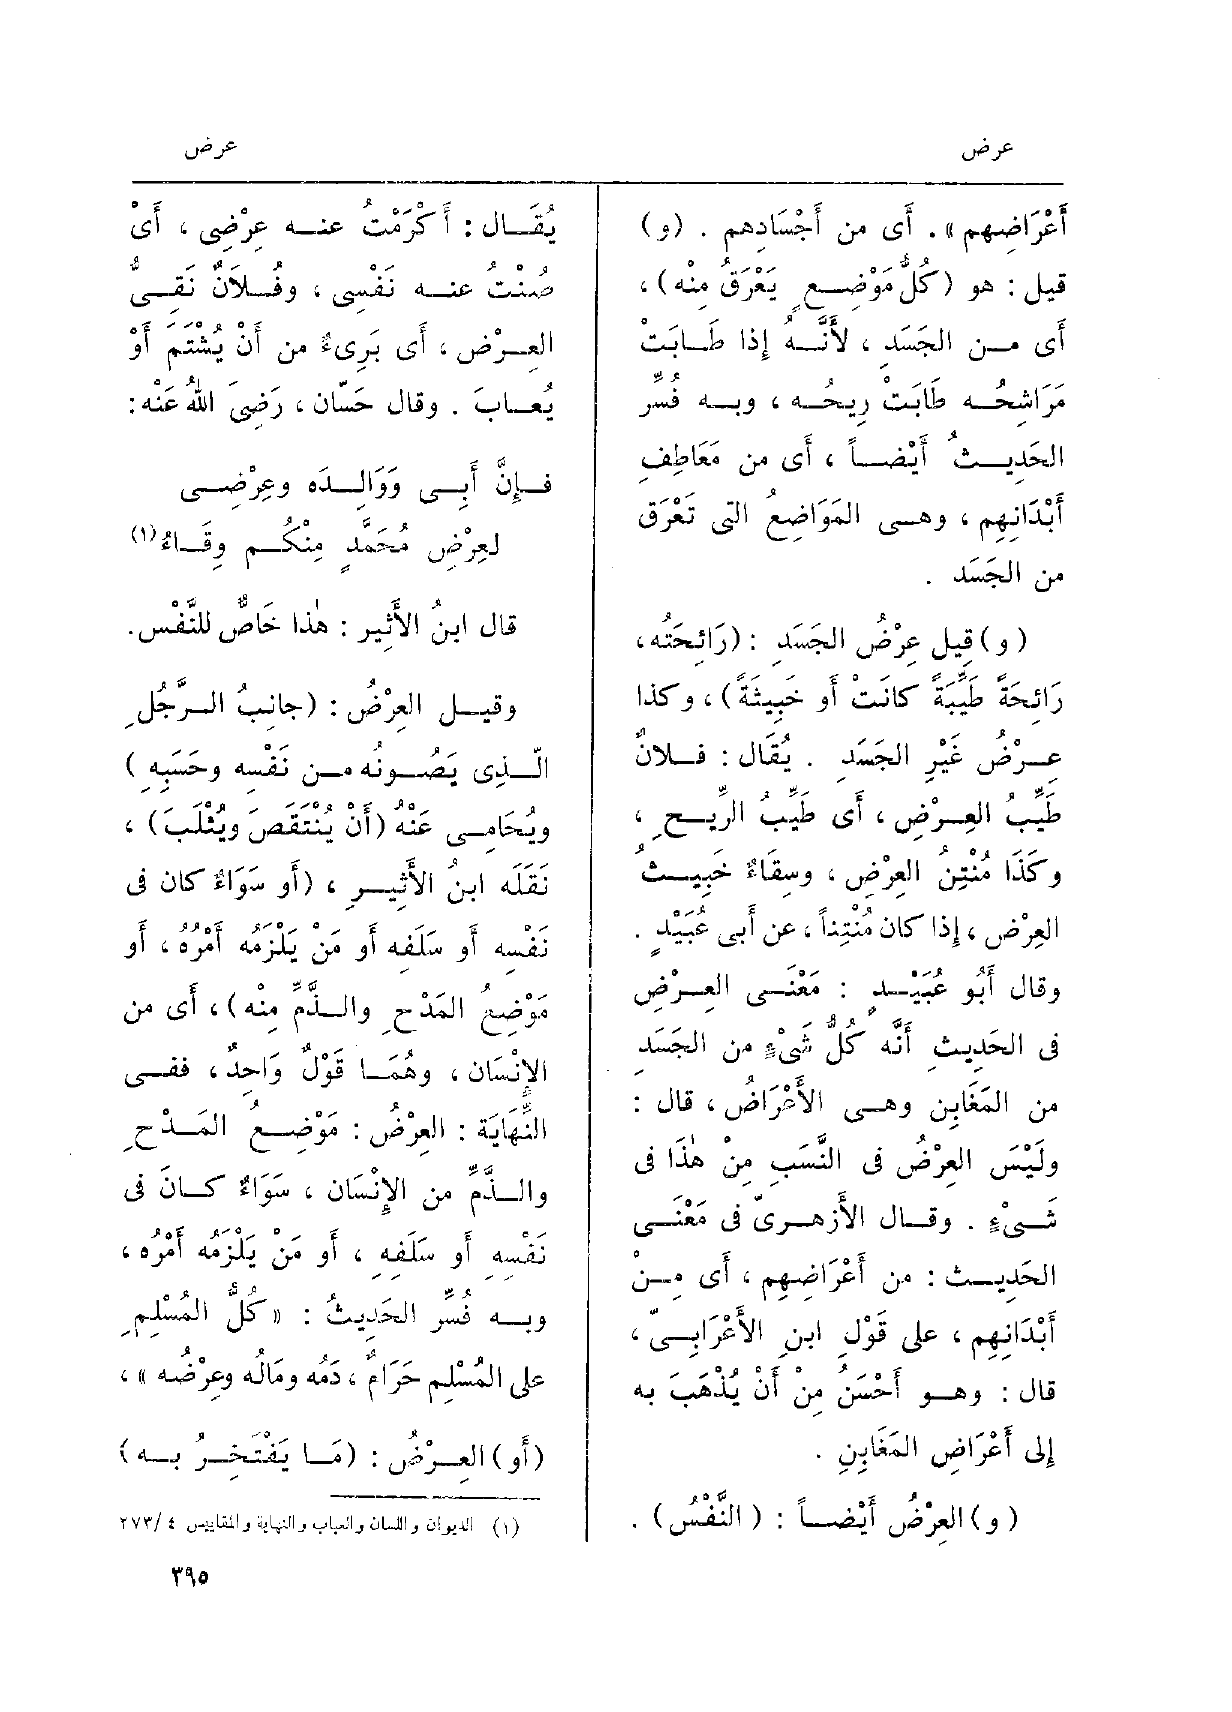 عرض
عرض
أَعْرَاضِهِم». أَى من أَجْسَادِهم . (و)
قيل : هو (كُلُّ مَوْضِعٍ يَعْرَقُ مِنْه) ،
أَى من الجَسَدِ ، لأَنَّهُ إذا طَابَتْ
مَرَاشِحُه طَابَتْ رِيحُه ، وبه فُسِّرَ
الحَدِيثُ أَيْضاً ، أَى من مَعَاطِفِ
أَبْدَانِهِم ، وهى المَوَاضِعُ التى تَعْرَق
من الجَسَد .
(و) قِيل عِرْضُ الجَسَدِ : (رَائِحَتُه ،
رَائِحَةً طَيِّبَةً كانَتْ أو خَبِيثَةً) ، وكذا
عِرْضُ غَيْرِ الجَسَدِ . يُقَال : فلانٌ
طَيِّبُ العِرْضِ ، أَى طَيِّبُ الرِّيحِ ،
وكَذَا مُنْتِنُ العِرْضِ ، وسِقَاءٌ خَبِيثُ
العِرْضِ ، إذا كان مُنْتِناً ، عن أبى عُبَيْدٍ .
وقال أَبُو عُبَيْدٍ : مَعْنَى العِرْضِ
فى الحَدِيثِ أَنَّه كُلُّ شَىْءٍ من الجَسَدِ
من المَغَابِن وهى الأَعْرَاضُ ، قال :
ولَيْسَ العِرْضُ فى النَّسَبِ مِنْ هٰذَا فى
شَىْءٍ . وقال الأَزهرىّ فى مَعْنَى
الحَدِيث : من أَعْرَاضِهِم ، أَى مِنْ
أَبْدَانِهِم ، على قَوْلِ ابنِ الأَعْرَابِىّ ،
قال : وهو أَحْسَنُ مِنْ أَنْ يُذْهَبَ به
إلى أَعْرَاضِ المَغَابِنِ .
(و) العِرْضُ أَيْضاً : (النَّفْسُ) .
يُقَال : أَكْرَمْتُ عنه عِرْضِى ، أَىْ
صُنْتُ عنه نَفْسِى ، وفُلانٌ نَقِىُّ
العِرْض ، أَى بَرِىءٌ من أَنْ يُشْتَمَ أَوْ
يُعَابَ . وقال حَسّان ، رَضِىَ اللهُ عَنْه :
فإِنَّ أَبِى وَوَالِدَه وعِرْضِى
لعِرْضِ مُحَمَّدٍ مِنْكُم وِقَاءُ(١)
قال ابنُ الأَثِير : هٰذا خَاصٌّ للنَّفْس.
وقيل العِرْضُ : (جانِبُ الرَّجُلِ
الَّذِى يَصُونُه من نَفْسِه وحَسَبِه )
ويُحَامِى عَنْهُ (أَنْ يُنْتَقَصَ ويُثْلَبَ) ،
نَقَلَه ابنُ الأَثِيرِ ، (أَو سَوَاءٌ كان فى
نَفْسِه أو سَلَفِه أو مَنْ يَلْزَمُه أَمْرُهُ ، أو
مَوْضِعُ المَدْحِ والذَّمِّ مِنْه) ، أَى من
الإِنْسَان ، وهُمَا قَوْلٌ وَاحِدٌ ، ففى
النِّهَايَة : العِرْضُ : مَوْضِعُ المَدْحِ
والذَّمِّ من الإِنْسَان ، سَوَاءٌ كانَ فى
نَفْسِهِ أو سَلَفِهِ ، أو مَنْ يَلْزَمُه أَمْرُه ،
وبه فُسِّرَ الحَدِيثُ : «كُلُّ المُسْلِمِ
على المُسْلِمِ حَرَامٌ ، دَمُه ومَالُه وعِرْضُه » ،
(أو) العِرْضُ : (مَا يَفْتَخِرُ بِه)
(١) الديوان واللسان والعباب والنهاية والمقاييس ٤ /٢٧٣
٣٩٥